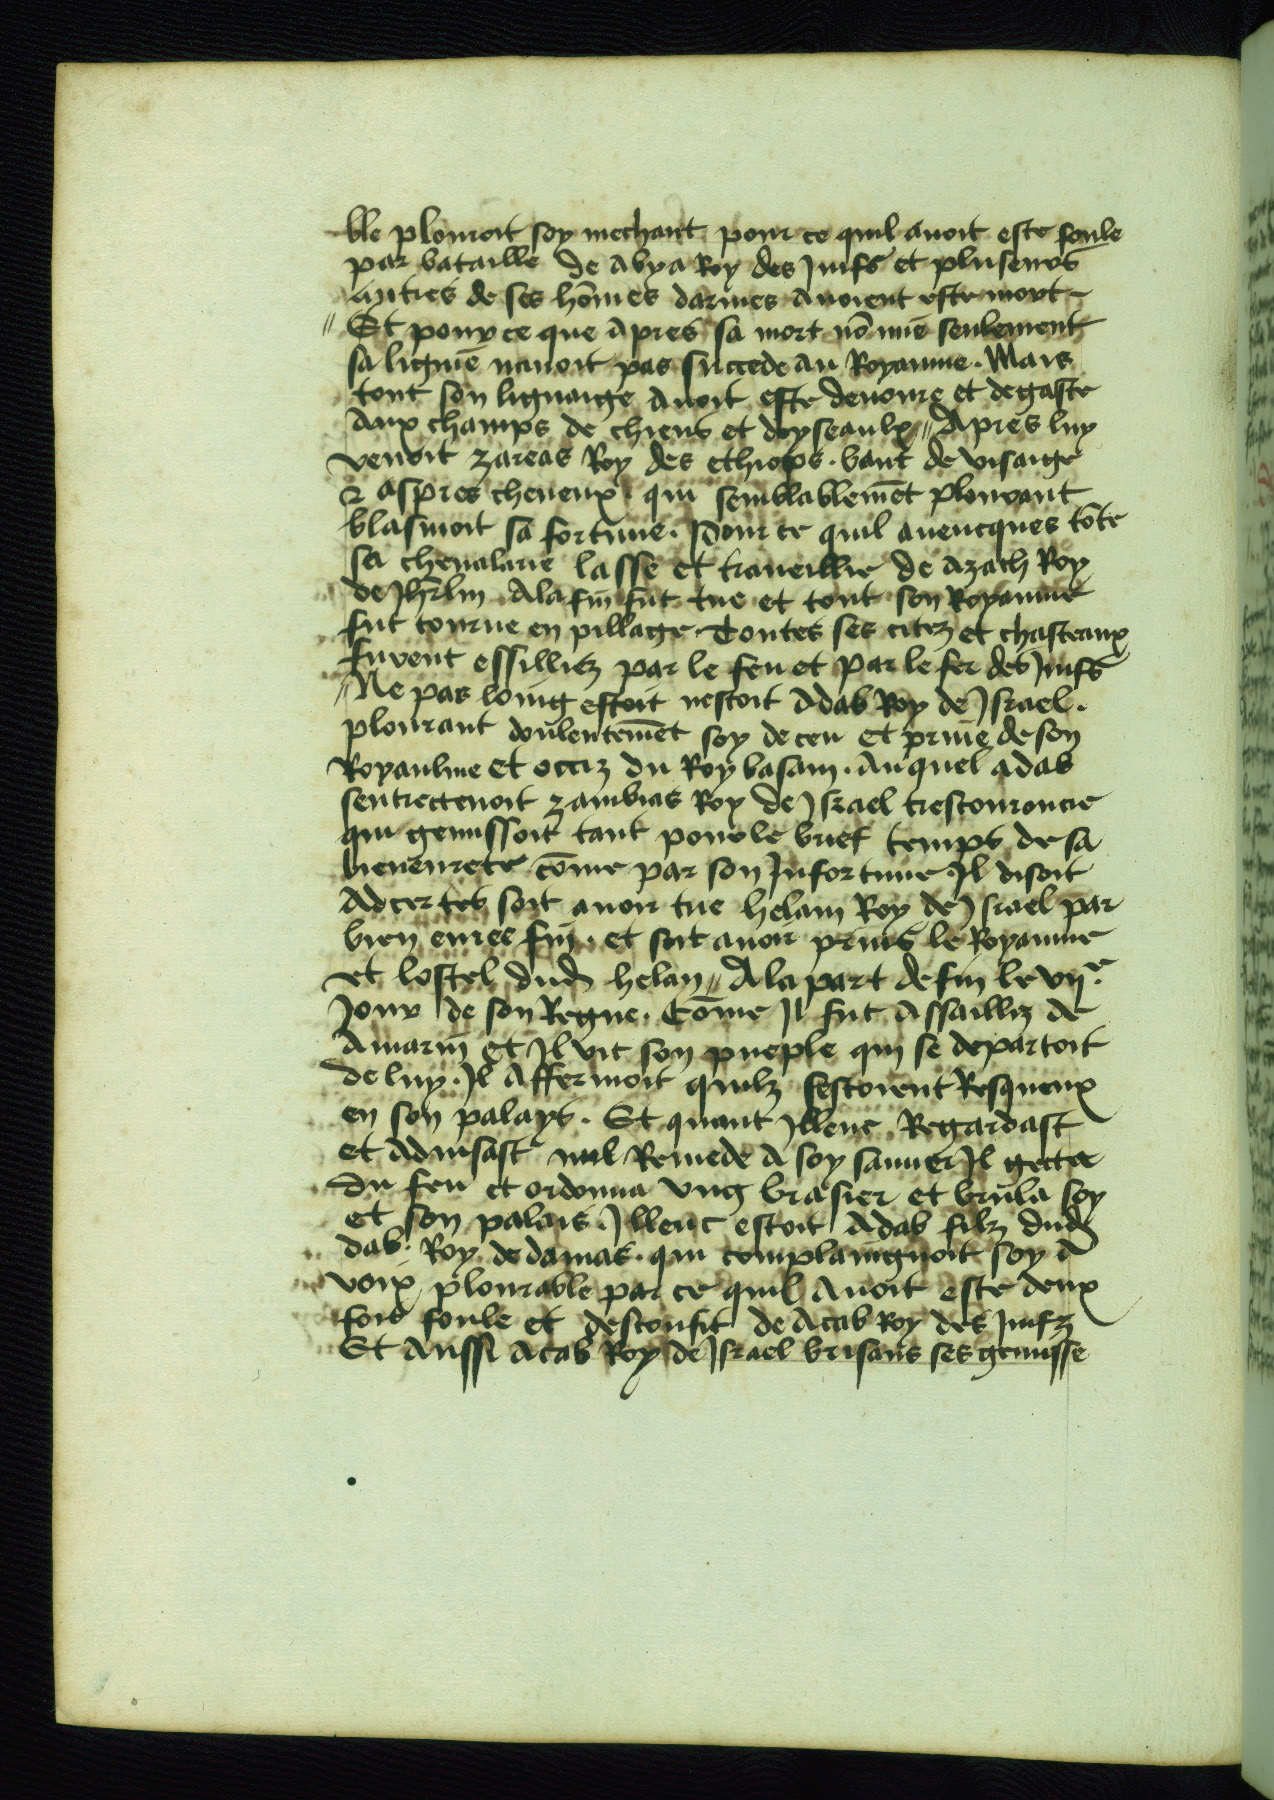 ble plouroit soy mechant pour ce quil auoit este foule
par bataille de Abya Roy des Juifs et pluseurs
autres de ses hōmes darmes auoient este mort
// Et pour ce que apres sa mort nō mie seulement
sa lignie nauoit pas succede au Royaume. Mais
tout son lignaige auoit este deuoure et degaste
aux champs de chiens et doyseaulx // Apres luy
venoit zareas Roy des ethiops. bant de visaige
& aspres cheueux. qui semblablemēt plourant
blasmoit sa fortune. Pour ce quil auencques toute
sa cheualarie lasse et traueillie de Azach Roy
de Jhrlm Ala fin fut tue et tout son Royaume
fut tourne en pillage. Toutes ses citez et chasteaux
furent essilliez par le feu et par le fer des Juifs
// Ne pas loing estoit nestoit Adab Roy de Israel.
plourant doulentemēt soy deceu et priue de son
Royaulme et occiz du Roy basam. Auquel adab
sentrectenoit zambias Roy de Israel trescouroucie
qui gemissoit tant pour le brief temps de sa
bieneurete cōme par son Infortune Il disoit
Adcertes soit auoir tue helam Roy de Israel par
bien euree fin. et soit auoir prins le Royaume
et lostel dud helan // A la part de fin le vije
Jour de son Regne. Cōme Il fut Assailliz de
Amarin et Il vit son pueple qui se departoit
de luy. Il Affermoit quilz sestoient Resqueux
en son palays. Et quant Illeuc Regardast
et Aduisast nul Remede A soy sauuer Il gecta
du feu et ordonna vng brasier et brula soy
et son palais. Illeuc estoit Adab filz dud
dab. Roy de damas. qui complaingnoit soy A
voix plourable par ce quil Auoit este deux
fois foule et desconfit de Acab Roy des Juifz
Et Aussi Acab Roy de Israel brisans ses gemisse